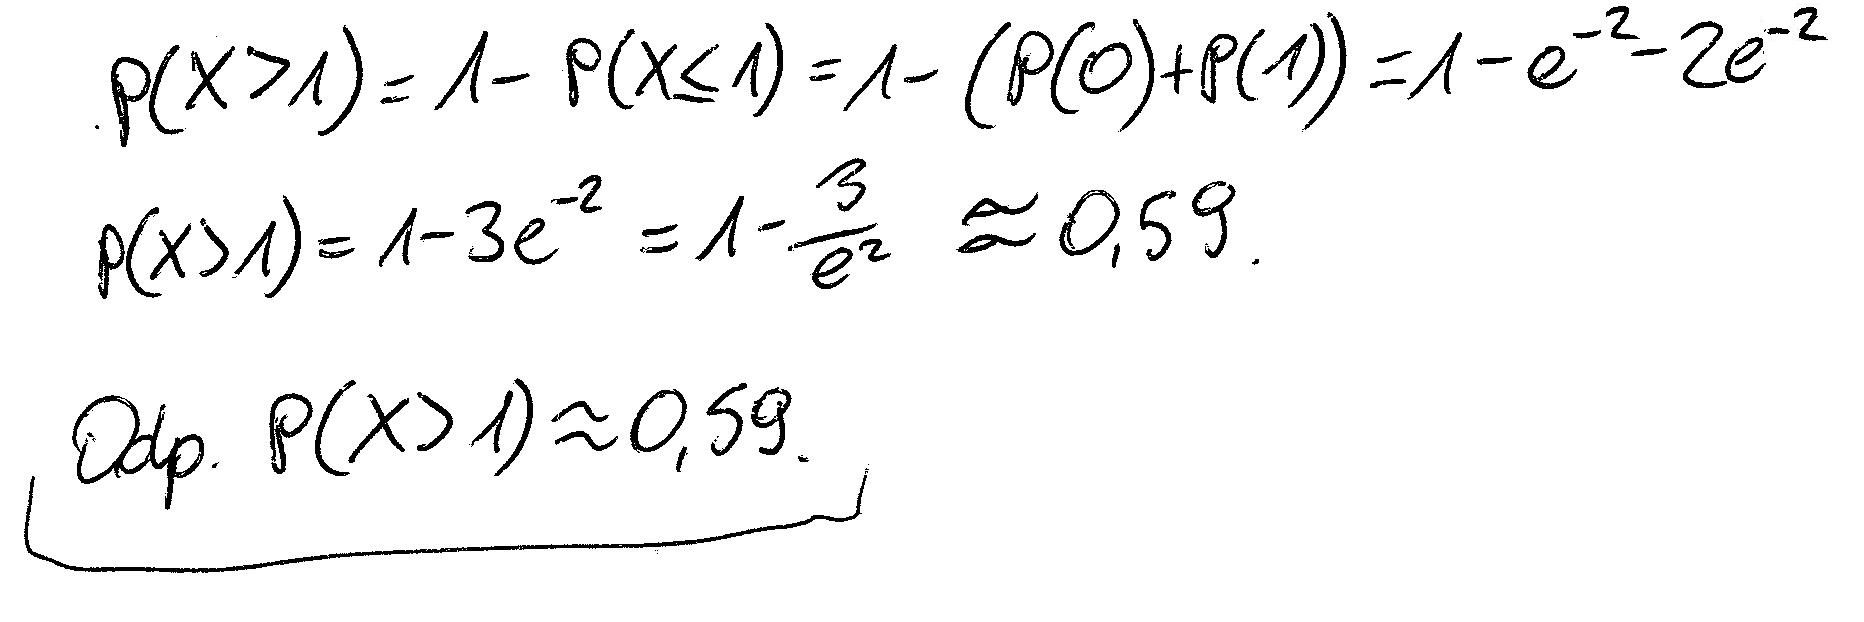 P(X>1) = 1 - P(X≤1) = 1 - (P(0)+P(1)) = 1 - e⁻² - 2e⁻²
P(X>1) = 1 - 3e⁻² = 1 - 3/e² ≈ 0,59.
Odp. P(X>1) ≈ 0,59.